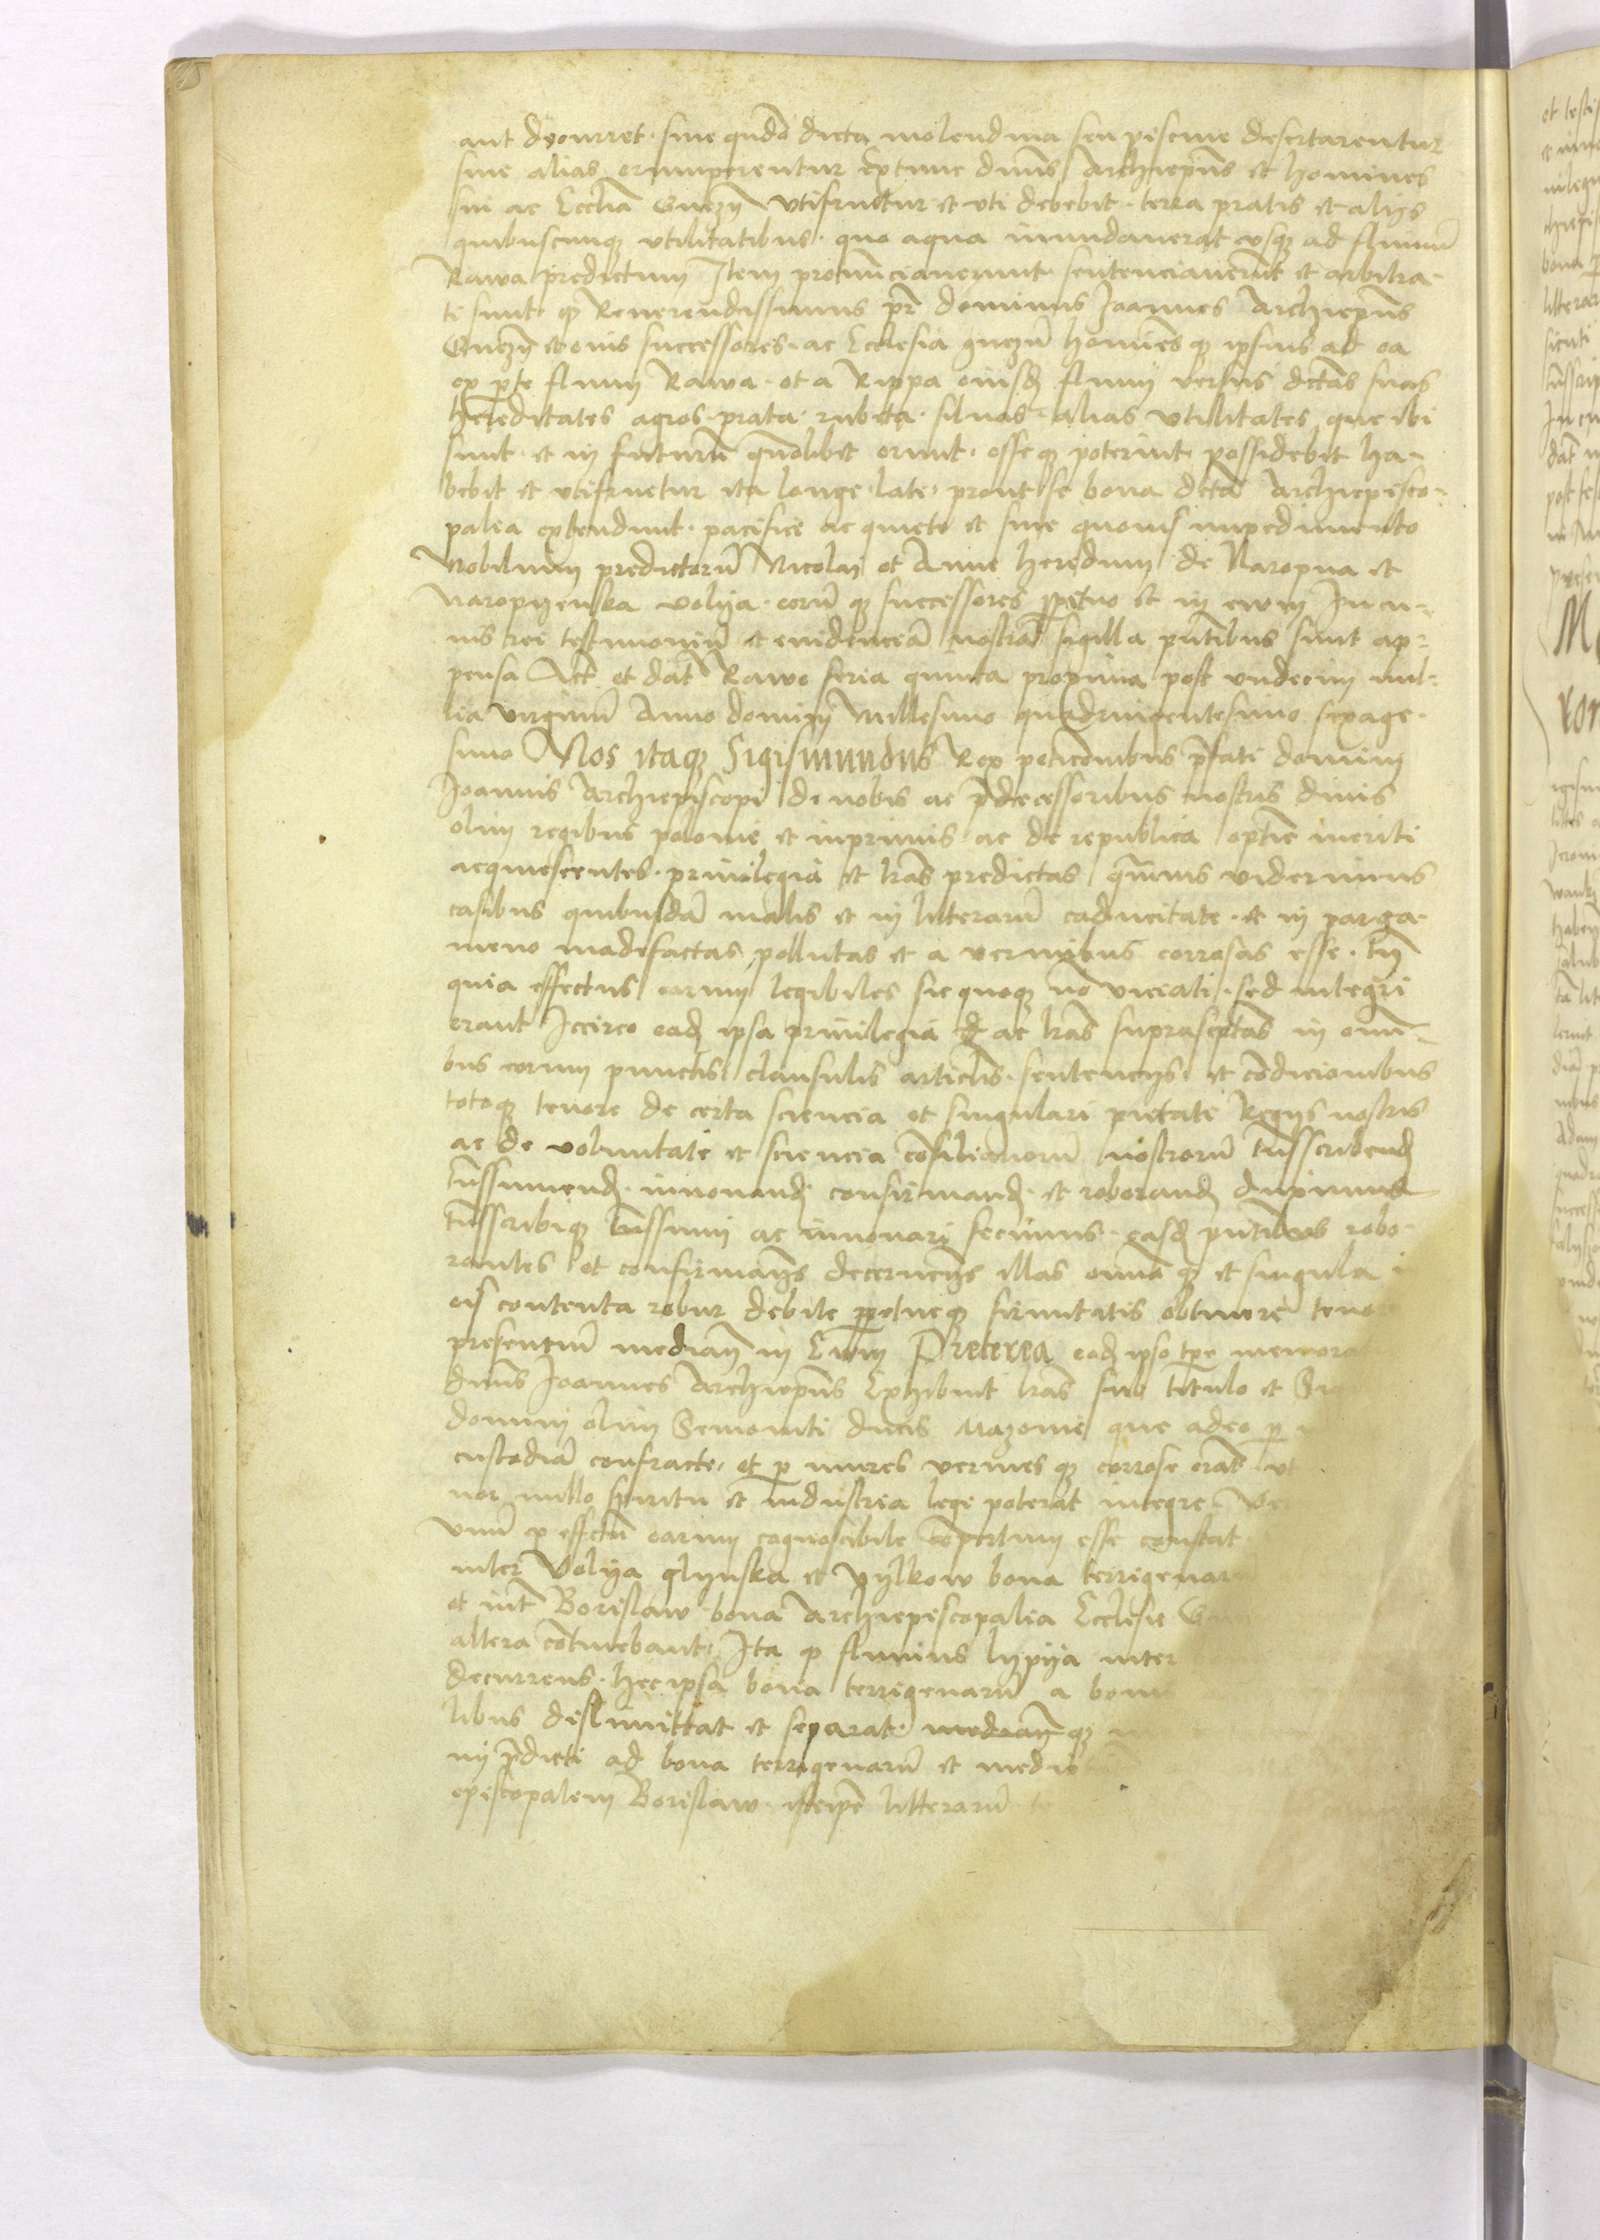 aut decurret. siue qn̄do dicta molendina seu piscine desertarentur
siue alias erumperentur Extunc dn̄us Archiepūs et homines
sui ac Ecclīa Gnezn̄ Vtifruetur et vti debebit. terra pratis et alijs
quibuscunqz vtilitatibus. quo aqua inundauerat vsqz ad fluuiū
Rawa predictum Item pronunciauerunt sentenciauerūt et arbitra-
ti sunt qz Reuerendissimus pr̄ dominus Joannes Archiepūs
Gnezn̄ et eius successores. ac Ecclesia gnezn̄ homines qz ipsius ad ea
ex pte fluuij Rawa. et a Rippa eiusdē fluuij versus dctas suas
hereditates agros. prata. rubeta. siluas. alias vtilitates que ibi
sunt. et in futurū qmōlibet erunt. esse qz poterint. possidebit ha-
bebit et vtifruetur ita longe. late. prout se bona dcta Archiepisco-
palia extendunt. pacifice ac quiete et sine quouis impedimento
Nobilium predictorū Nicolai et Anne heredum de Naropna et
naropyenska volya. eorū qz successores ppetuo et in ewm In cu-
ius rei testimoniū et euidenciā nostra sigilla pn̄tibus sunt ap-
pensa Act̄ et dat̄ Rawe feria quinta proxima post vndecim mil-
lia virginū Anno domini Millesimo quadringentesimo sexage-
simo Nos itaqz Sigismundus Rex peticionibus p̄fati domini
Joannis Archiepiscopi de nobis ac p̄decessoribus nostris diuis
olim regibus polonie et inprimis ac de republica optīe meriti
acquiescentes. priuilegia et lrās predictas qm̄uis viderimus
casibus quibusdā malis et in litterarū caducitate. et in parga-
meno madefactas pollutas et a vermibus corrosas esse. tn̄
quia effectus earum legibiles sicquoqz nō viciati. sed integri
erant Iccirco eadē ipsa priuilegia ac lrās suprascptas in omī-
bus eorum punctis clausulis articlis. sentencijs. et cōdicionibus
totoqz tenore de certa sciencia et singulari pietate Regijs nostris
ac de voluntate et sciencia cōsiliariorū nostrorū tn̄sscribendē
tn̄ssumendē. innouandē. confirmandē. et roborandē duximus
tn̄sscribiqz tn̄ssumi ac innouari fecimus. easdē pn̄tibus robo-
rantes et confirmantes decernentes illas omīa qz et singula
eis contenta robur debite ppetueqz firmitatis obtinere teno
presentiū mediantē in Ewm Preterea eadē ipso tpe memora
dn̄us Joannes Archiepūs Exhibuit lrās sub titulo et
domini olim Semouiti ducis Mazouie que adeo p
custodiā confracte. et p mures vermes qz corrose erāt vt
nor nullo spiritu et industria lege poterāt integre
vnū ex effctū earum cognoscibile cōpertum esse constat
inter Volya glynska et Vylkow bona terrigenaru
et int̄ Borislaw bona Archiepiscopalia Ecclesie
altera cōtinebant. Ita qz fluuius lypya inter
decurrens. hec ipsa bona terrigenarū a boni
libus dislimittat et separat. medianqz
nij p̄dicti ad bona terrigenarū et medie
episcopalem Borislaw. litterarū